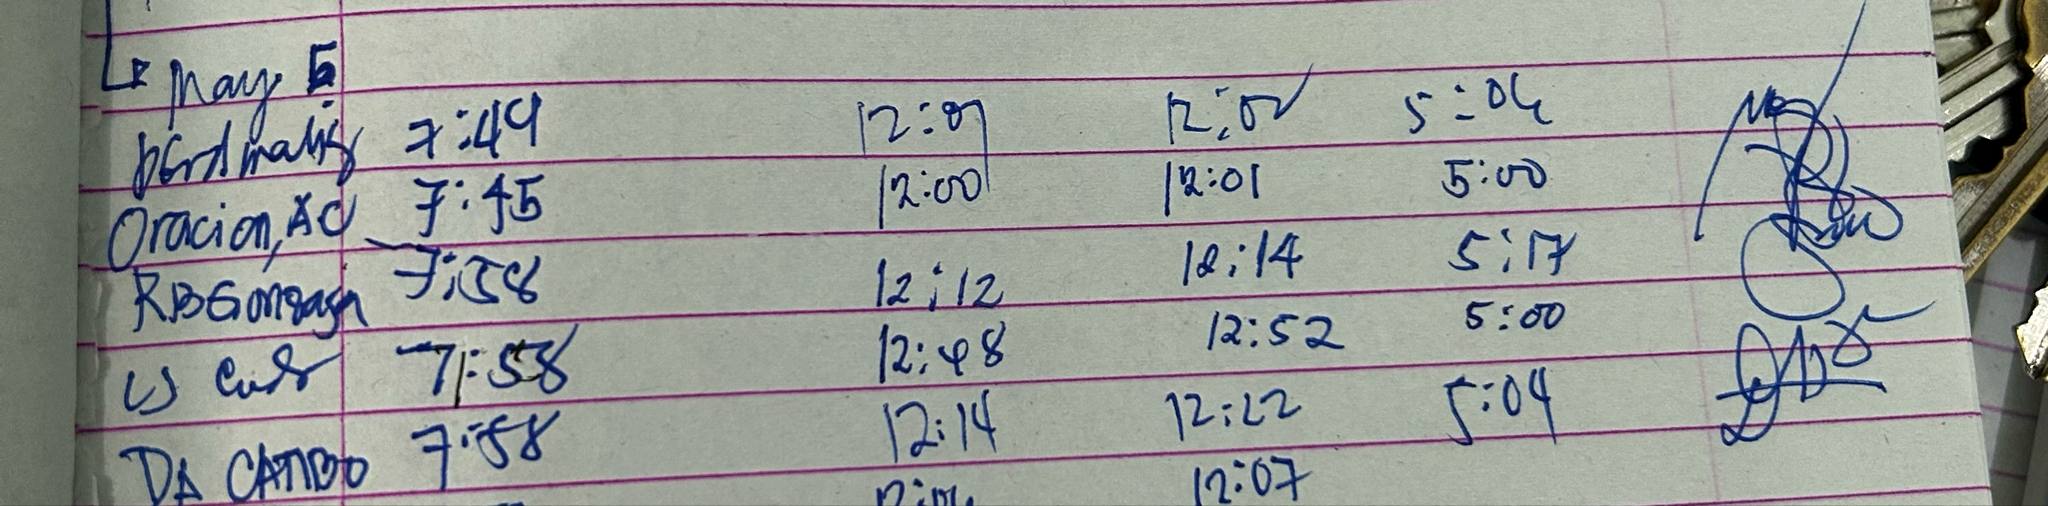 May 5
7:49 12:01 12:02 5:04
Oracion, AC 7:45 12:00 12:01 5:00
RB Gonzaga 7:58 12:12 12:14 5:17
7:58 12:48 12:52 5:00
DA CATIBO 7:58 12:14 12:22 5:04
12:07